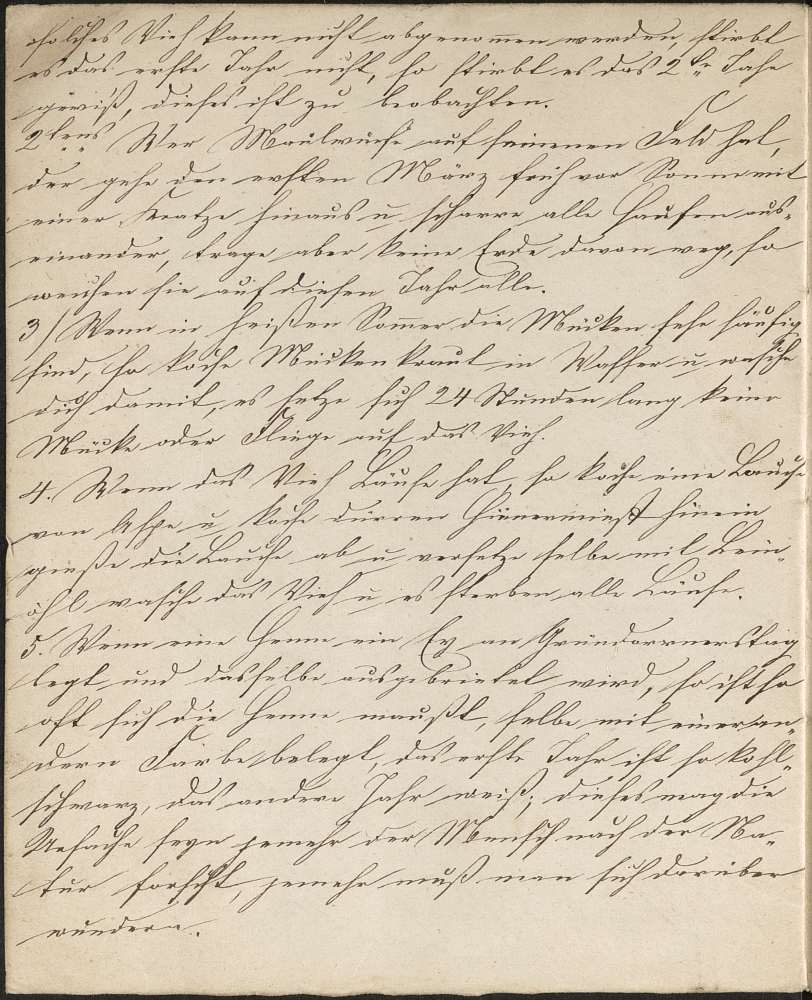 solches Vieh kann nicht abgenom̄en werden, stirbt
es das erste Jahr nicht, so stirbt es das 2te Jahr
gewiß, dieses ist zu beobachten.
2tens Wer Maulwürfe auf seinenen Feld hat,
der gehe den ersten März früh vor Sonne mit
einer Kratze hinaus u scharre alle Haufen aus-
einander, trage aber keine Erde davon weg, so
weichen sie auf diesen Jahr alle.
3/ Wenn in heißen Som̄er die Mücken sehr häufig
sind, so koche Mückenkraut in Wasser u wasche
dich damit, es setze sich 24 Stunden lang keine
Mücke oder Fliege auf das Vieh.
4. Wenn das Vieh Läuse hat, so koche eine Lauche
von Aspe u koche dürren Hünermist hinein
gieße die Lauche ab u versetze selbe mit Lein-
öhl wasche das Vieh u es sterben alle Läuse.
5. Wenn eine Henne ein Ey an Gründonnerstag
legt und dasselbe ausgebrietet wird, so ist so
oft sich die Henne maußt, selbe mit einer an-
dern Farbe belegt, das erste Jahr ist so kohl-
schwarz, das andere Jahr weiß; dieses mag die
Ursache seyn jemehr der Mensch nach der Na-
tur forscht, jemehr muß man sich darüber
wundern.